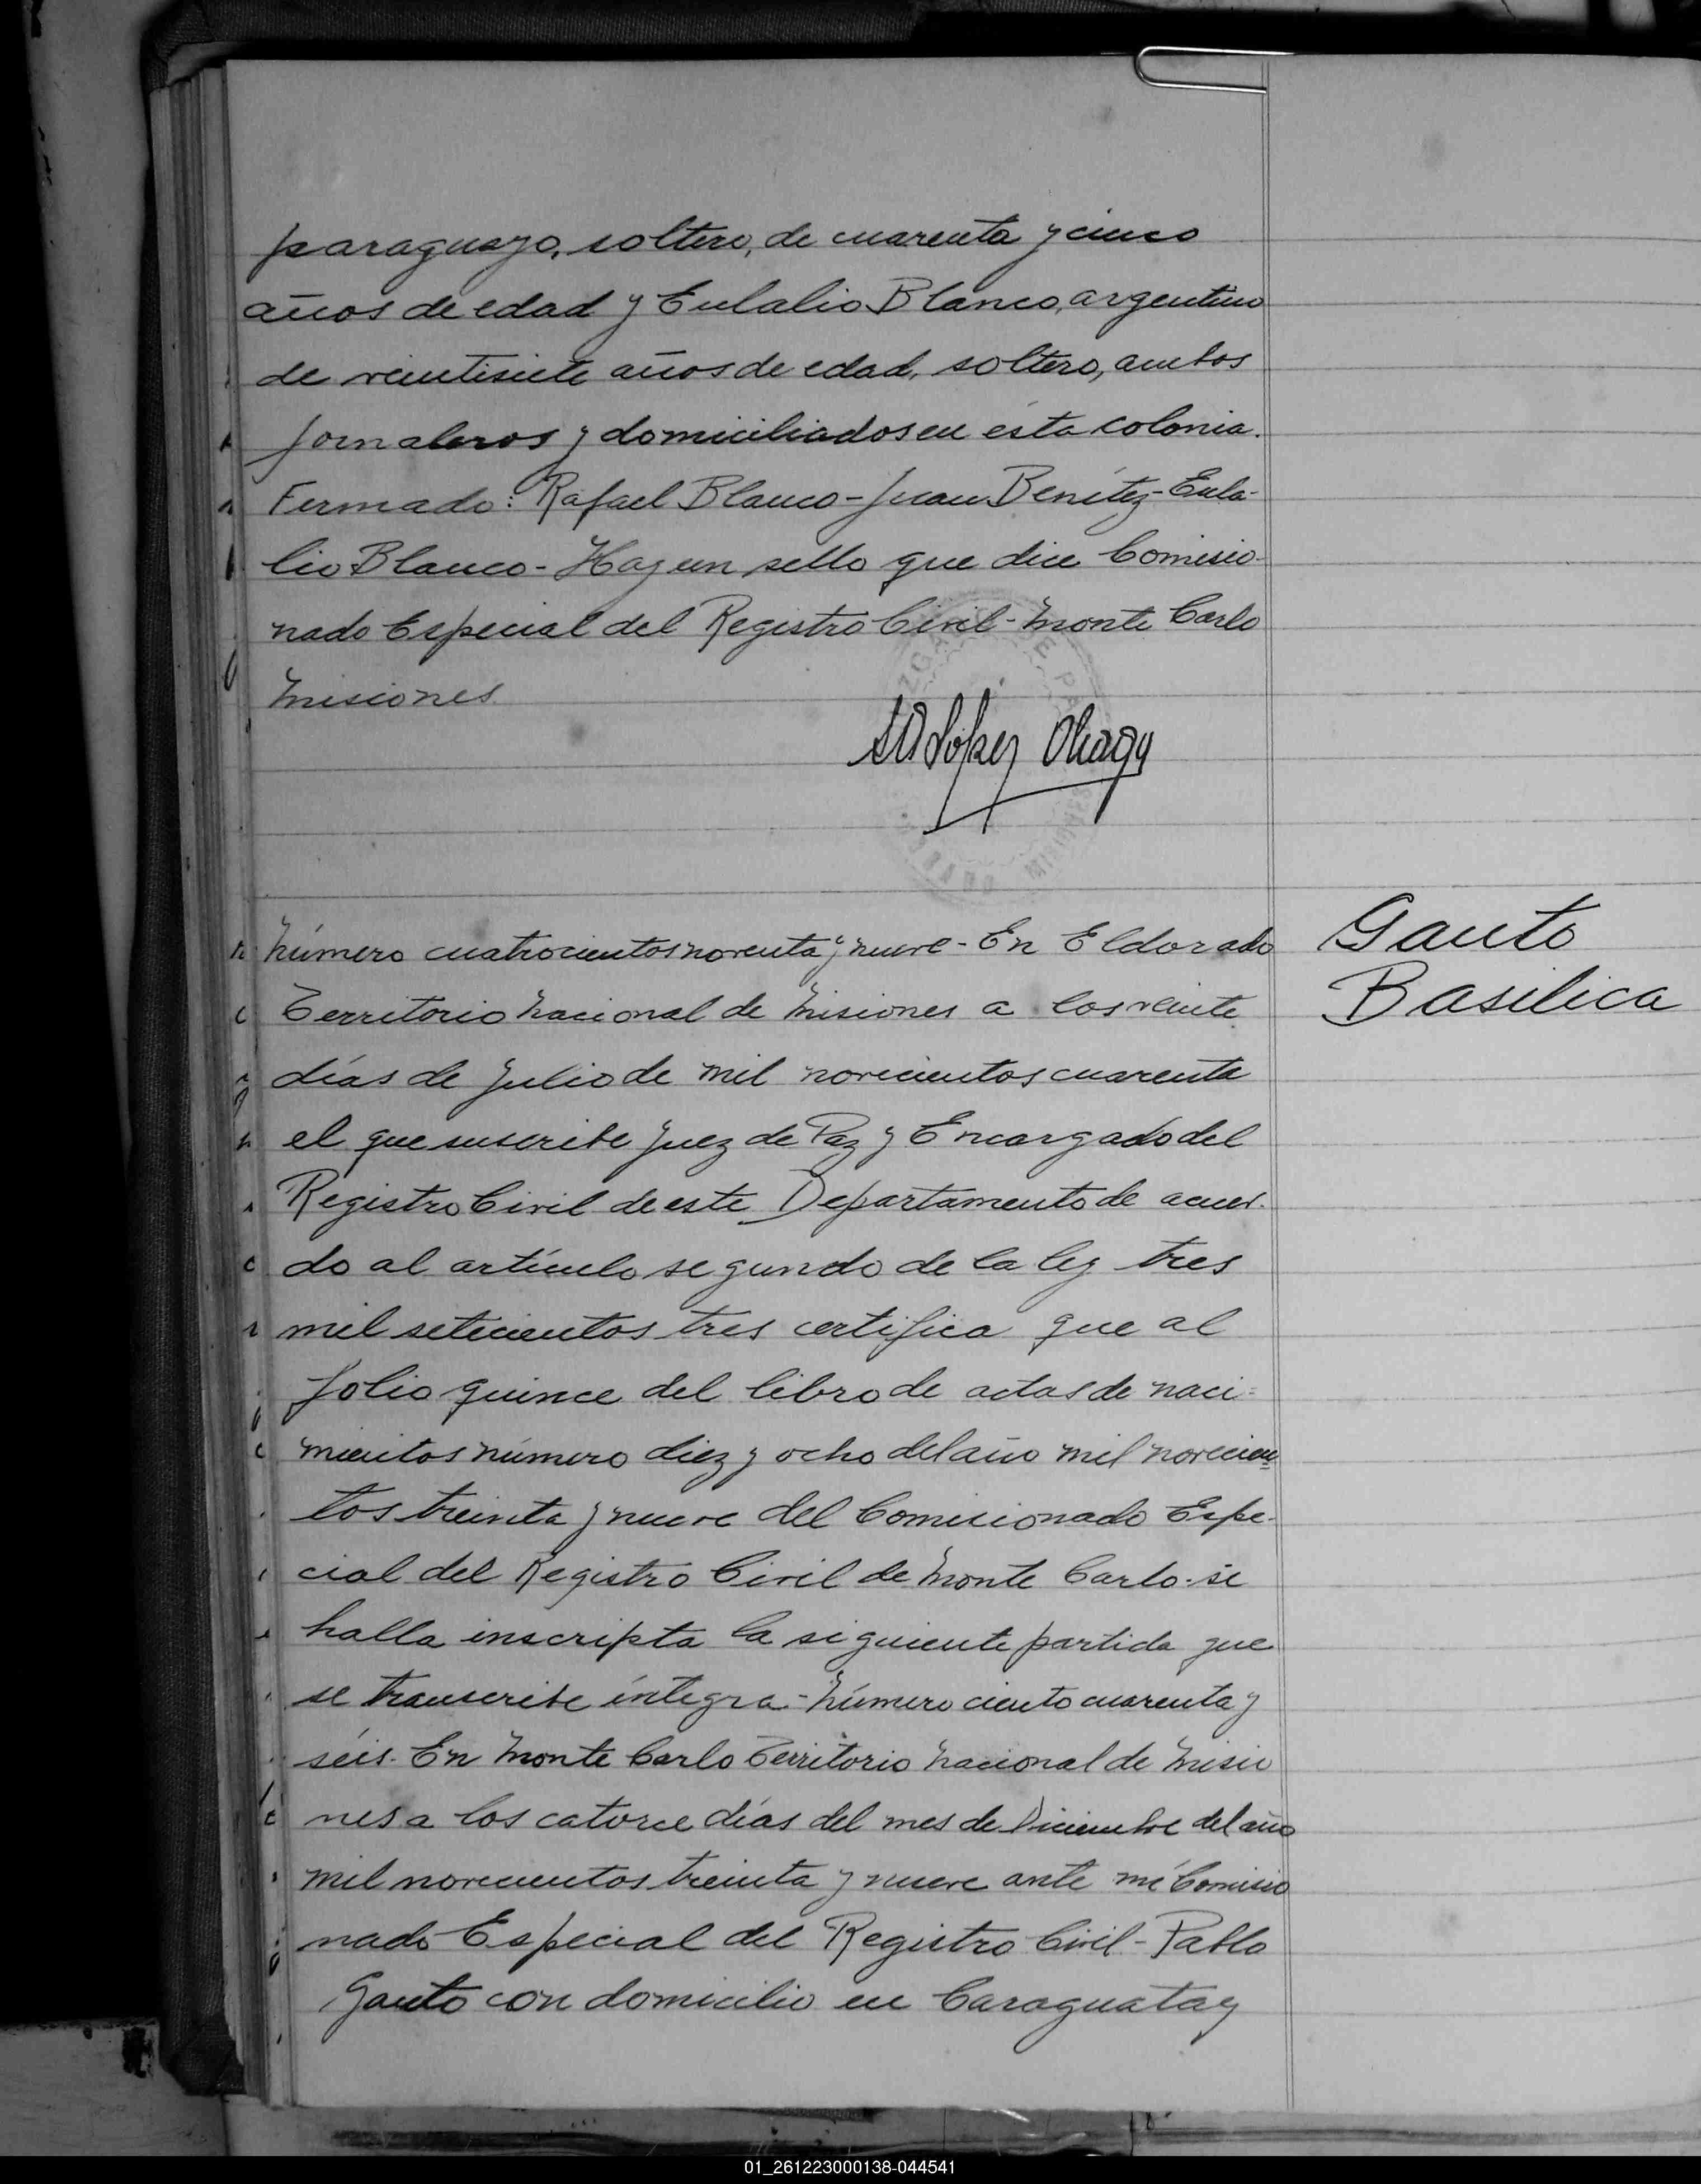 paraguayo, soltero, de cuarenta y cinco
años de edad y Eulalio Blanco, argentino
de veintisiete años de edad, soltero, ambos
jornaleros y domiciliados en ésta colonia.
Firmado: Rafael Blanco - Juan Benítez - Eula-
lio Blanco - Hay un sello que dice Comisio-
nado Especial del Registro Civil - Monte Carlo
Misiones.
López
Número cuatrocientos noventa y nueve - En Eldorado
Gauto
Basilica
Territorio Nacional de Misiones a los veinte
días de Julio de mil novecientos cuarenta
el que suscribe Juez de Paz y Encargado del
Registro Civil de este Departamento de acuer-
do al artículo segundo de la ley tres
mil setecientos tres certifica que al
folio quince del libro de actas de naci-
mientos número diez y ocho del año mil novecien
tos treinta y nueve del Comisionado Espe-
cial del Registro Civil de Monte Carlo - se
halla inscripta la siguiente partida que
se transcribe íntegra - Número ciento cuarenta y
séis. En Monte Carlo Territorio Nacional de Misio
nes a los catorce días del mes de Diciembre del año
mil novecientos treinta y nueve ante mí Comisio
nado Especial del Registro Civil - Pablo
Gauto con domicilio en Caraguatay
01_261223000138-044541